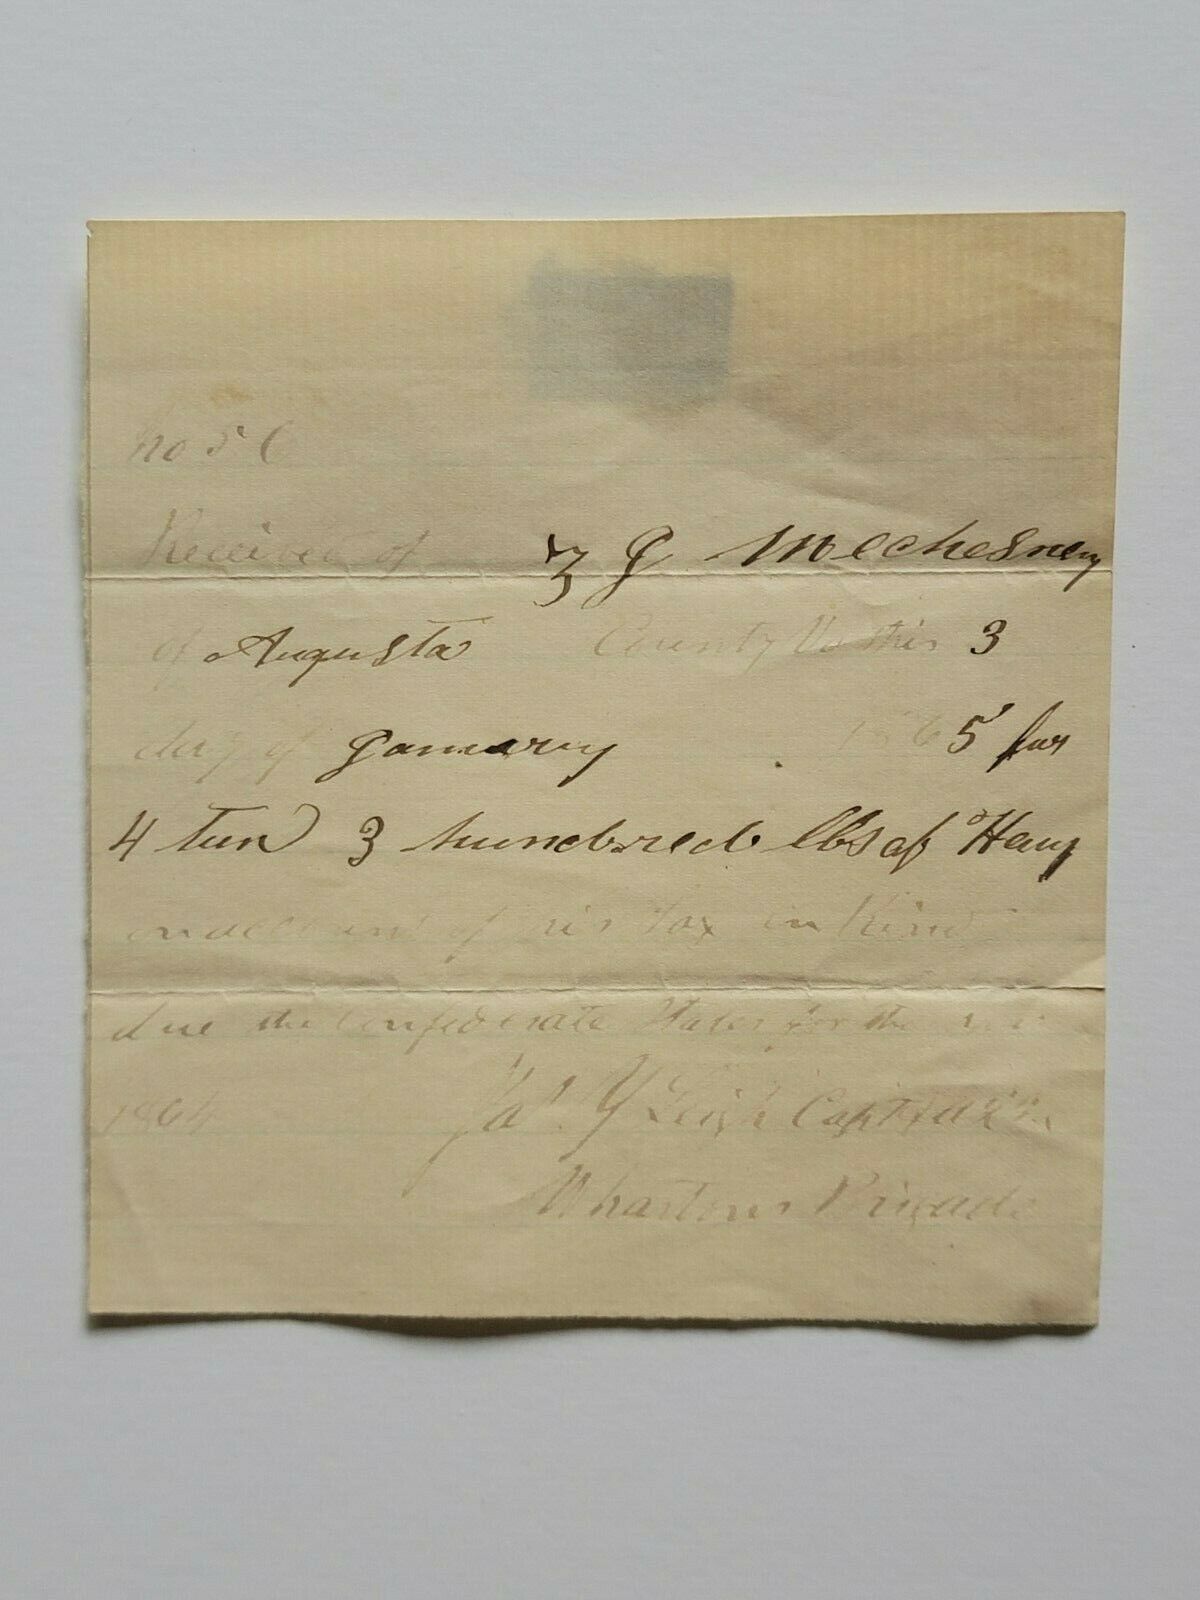 no 56
Received of Z J McChesney
of Augusta County Va this 3
day of January 1865 for
4 tun 3 hundred lbs of Hay
on account of his tax in Kind
due the Confederate States for the
1864 Jas. Y Leigh Capt
Whartons Brigade